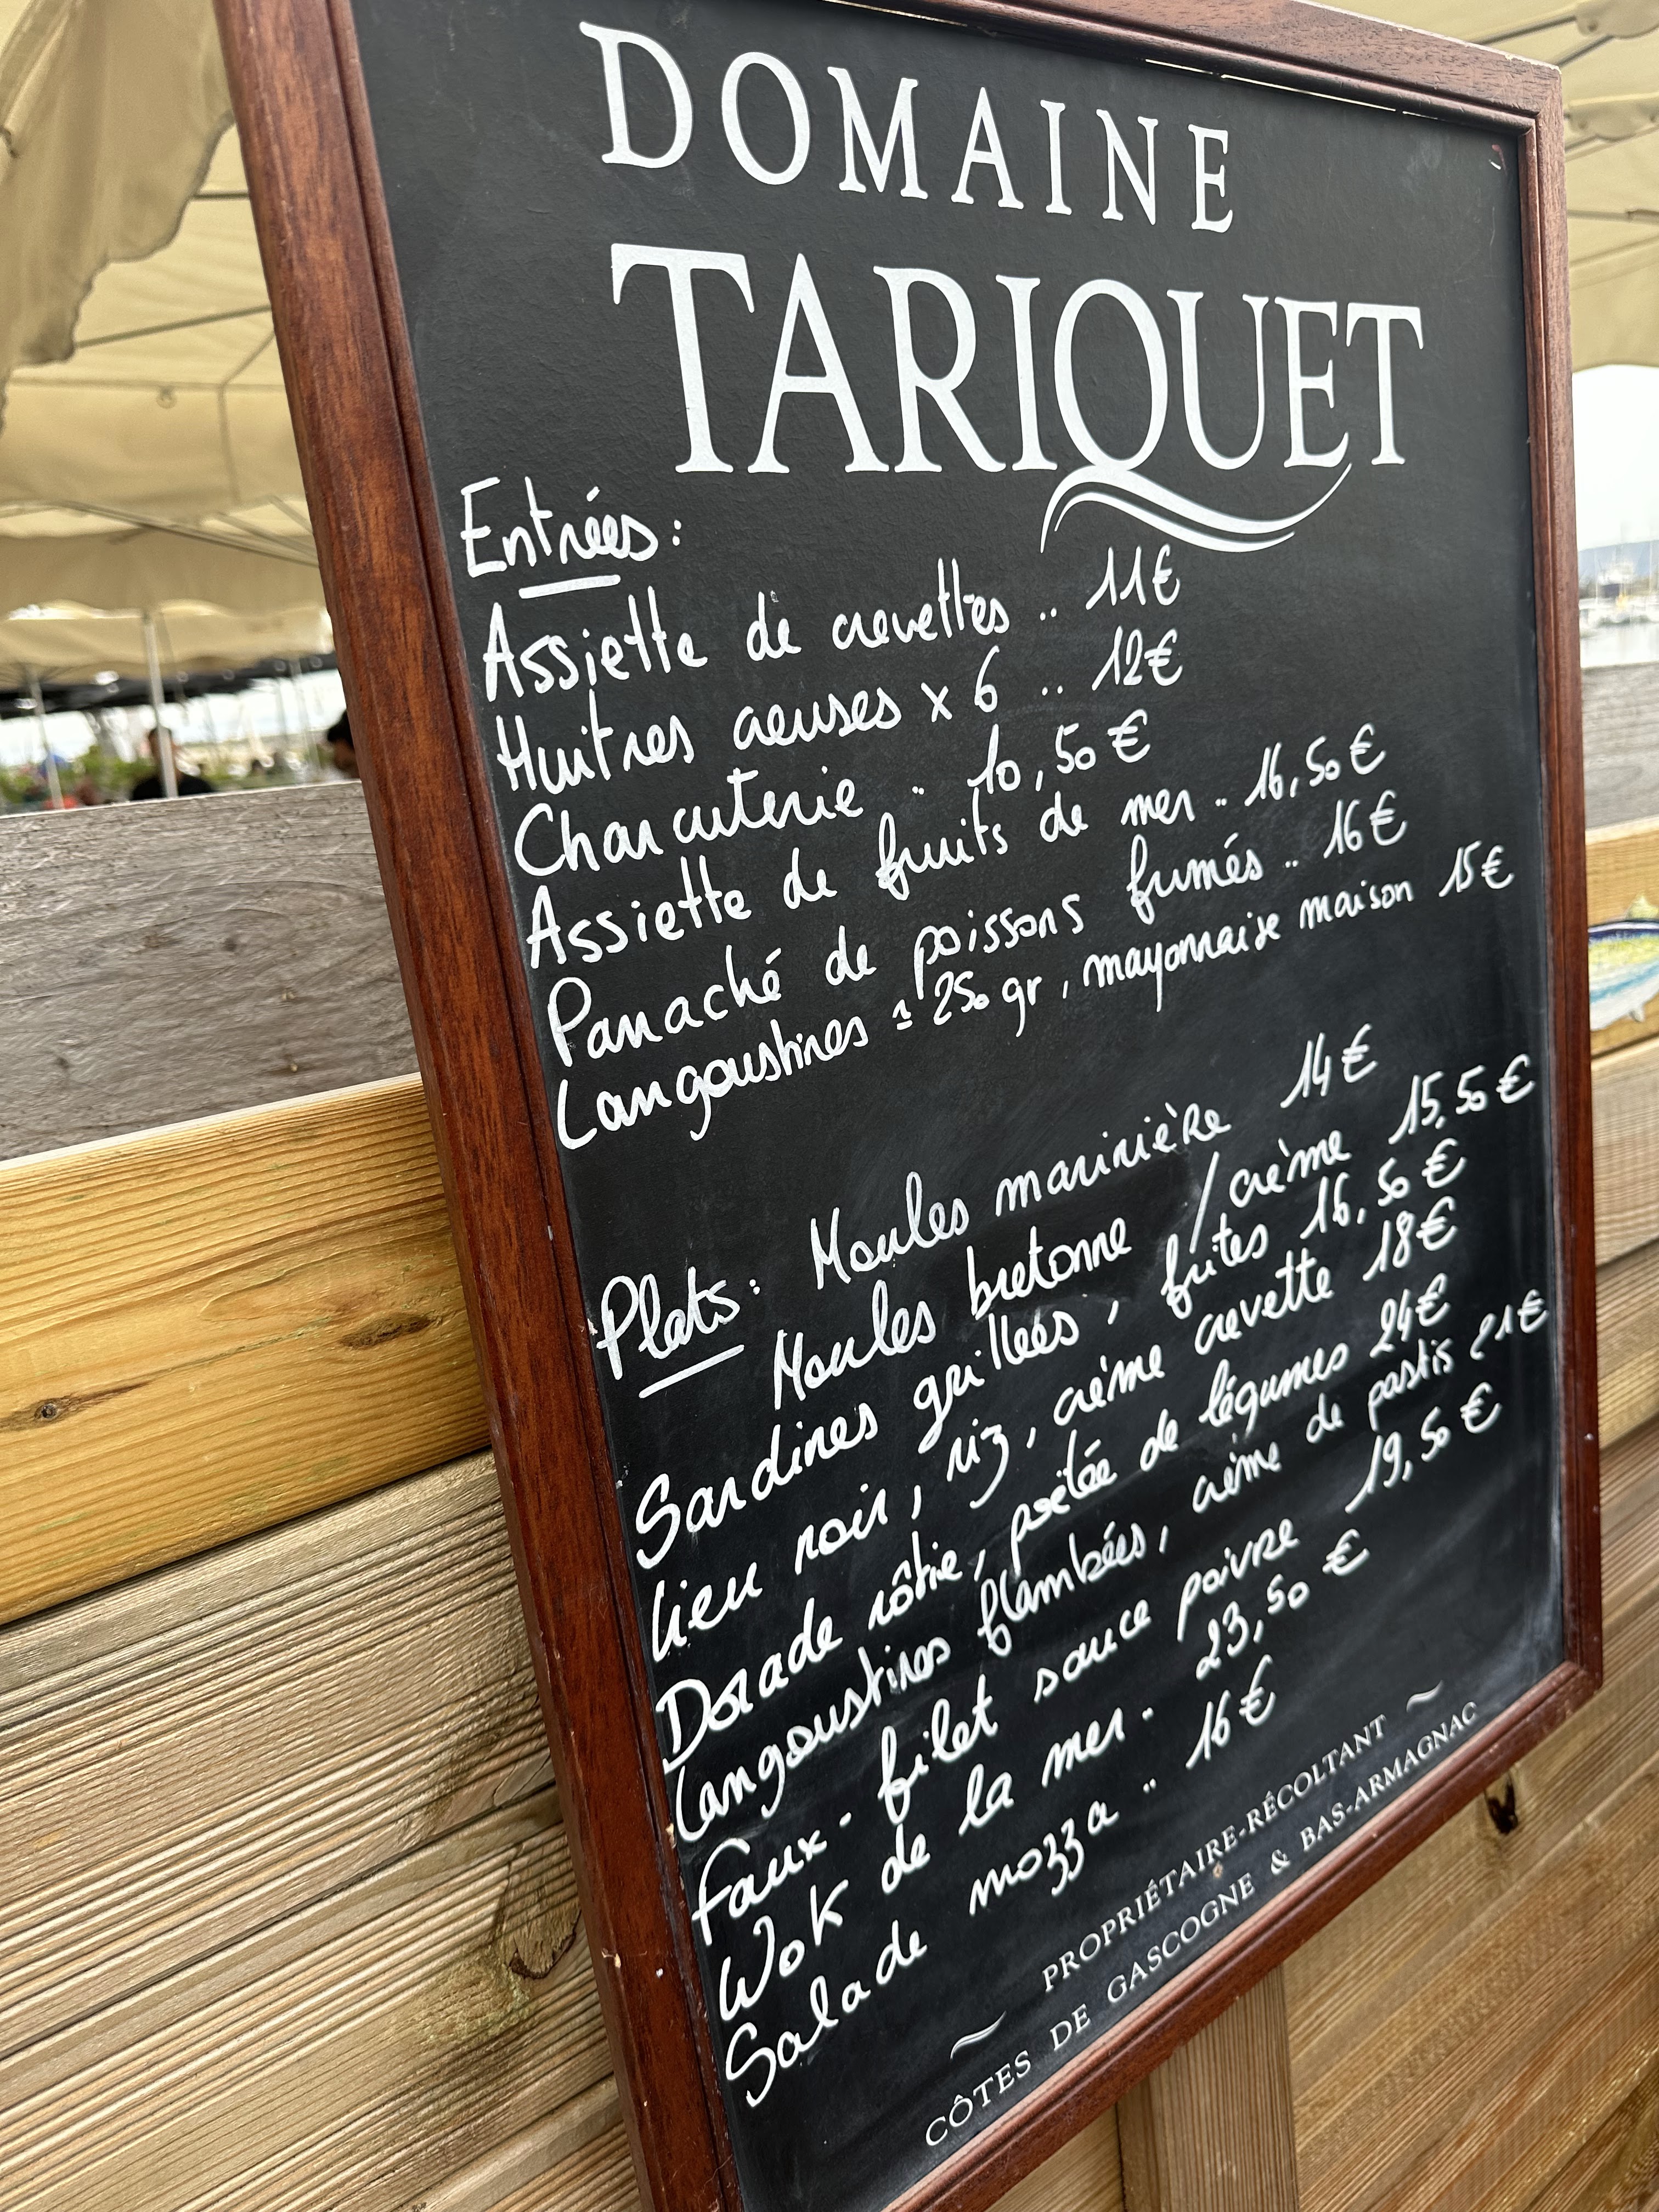 DOMAINE
TARIQUET
Entrées :
Assiette de crevettes .. 11€
Huitres creuses x 6 .. 12€
Charcuterie .. 10,50€
Assiette de fruits de mer .. 16,50€
Panaché de poissons fumés .. 16€
Langoustines ± 250 gr, mayonnaise maison 15€
Plats : Moules marinière 14€
Moules bretonne / crème 15,50€
Sardines grillées, frites 16,50€
Lieu noir, riz, crème crevette 18€
Dorade rôtie, poêlée de légumes 24€
Langoustines flambées, crème de pastis 21€
Faux-filet sauce poivre 19,50€
Wok de la mer .. 23,50€
Salade mozza .. 16€
~ PROPRIÉTAIRE-RÉCOLTANT ~
CÔTES DE GASCOGNE & BAS-ARMAGNAC